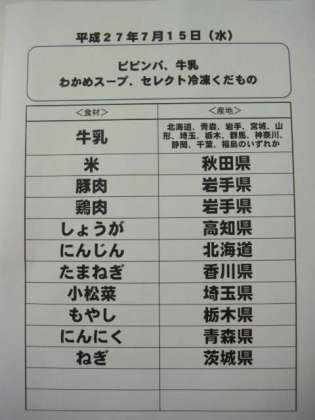 平成27年7月15日（水）
ビビンバ、牛乳
わかめスープ、セレクト冷凍くだもの
＜食材＞ ＜産地＞
牛乳 北海道、青森、岩手、宮城、山
形、埼玉、栃木、群馬、神奈川、
静岡、千葉、福島のいずれか
米 秋田県
豚肉 岩手県
鶏肉 岩手県
しょうが 高知県
にんじん 北海道
たまねぎ 香川県
小松菜 埼玉県
もやし 栃木県
にんにく 青森県
ねぎ 茨城県